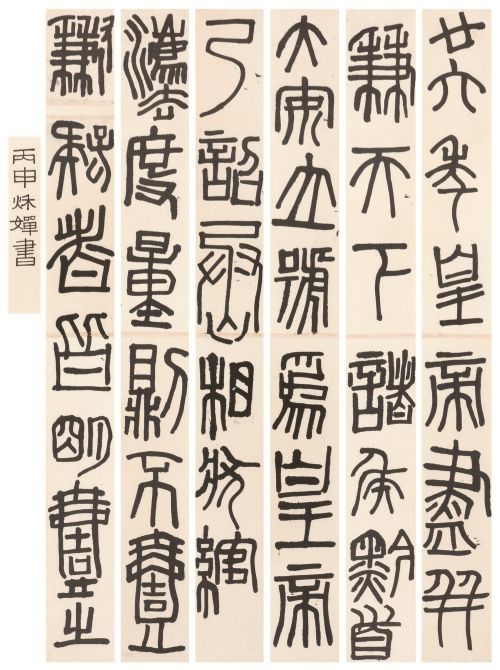 廿六年皇帝盡并
兼天下諸侯黔首
大安立號爲皇帝
乃詔丞相狀綰
灋度量則不壹
歉疑者皆明壹之
丙申秌嬋書